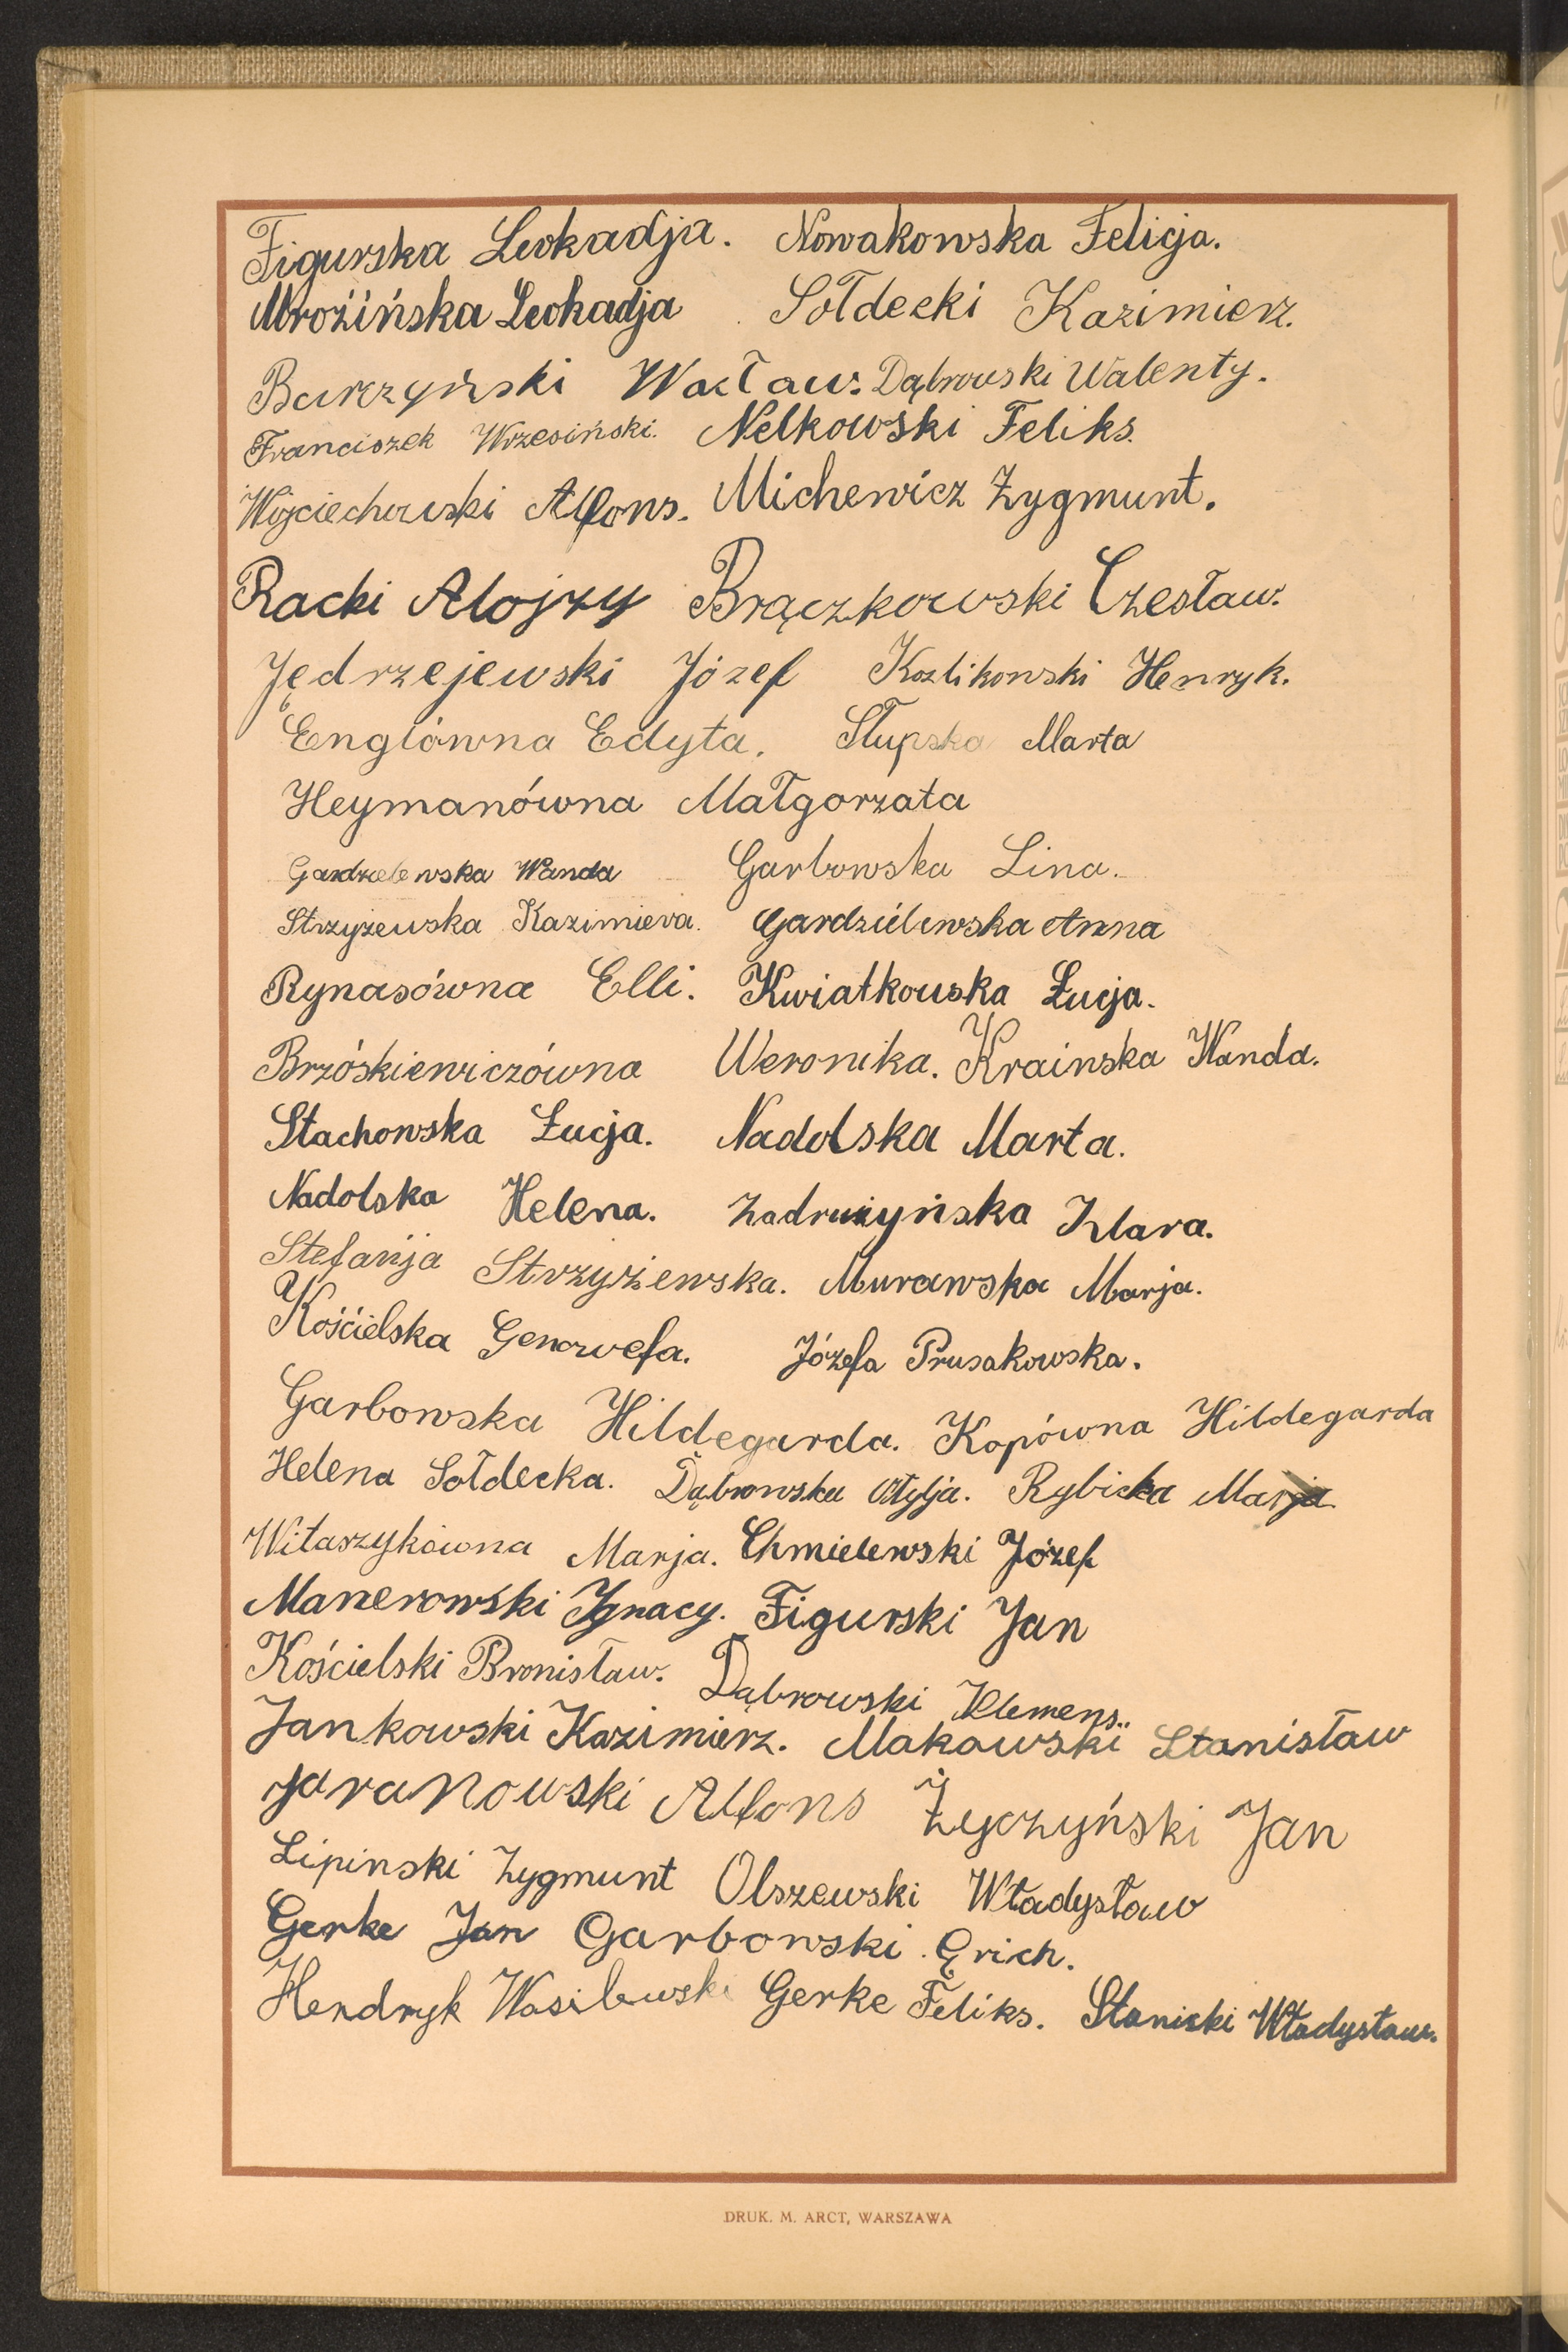 Figurska Leokadja. Nowakowska Felicja.
Mroźińska Leokadja Sołdecki Kazimierz.
Burczyński Wacław. Dąbrowski Walenty.
Franciszek Wrzesiński. Nelkowski Feliks.
Wojciechowski Alfons. Michewicz Zygmunt.
Racki Alojzy Brączkowski Czesław.
Jędrzejewski Józef Kozlikowski Henryk.
Englówna Edyta. Słupska Marta
Heymanówna Małgorzata
Gardzielewska Wanda Garbowska Lina.
Strzyżewska Kazimiera. Gardzielewska Anna
Rynasówna Elli. Kwiatkowska Łucja.
Brzóskiewiczówna Weronika. Krainska Wanda.
Stachowska Łucja. Nadolska Marta.
Nadolska Helena. Zadrużyńska Klara.
Stefanja Strzyżewska. Murawska Marja.
Kościelska Genowefa. Józefa Prusakowska.
Garbowska Hildegarda. Kopówna Hildegarda
Helena Sołdecka. Dąbrowska Otylja. Rybicka Marja
Witaszykówna Marja. Chmielewski Józef
Manerowski Ignacy. Figurski Jan
Kościelski Bronisław. Dąbrowski Klemens.
Jankowski Kazimierz. Makowski Stanisław
Jaranowski Alfons Życzyński Jan
Lipinski Zygmunt Olszewski Władysław
Gerke Jan Garbowski Erich.
Hendryk Wasilewski Gerke Feliks. Stanicki Władysław.
DRUK. M. ARCT, WARSZAWA